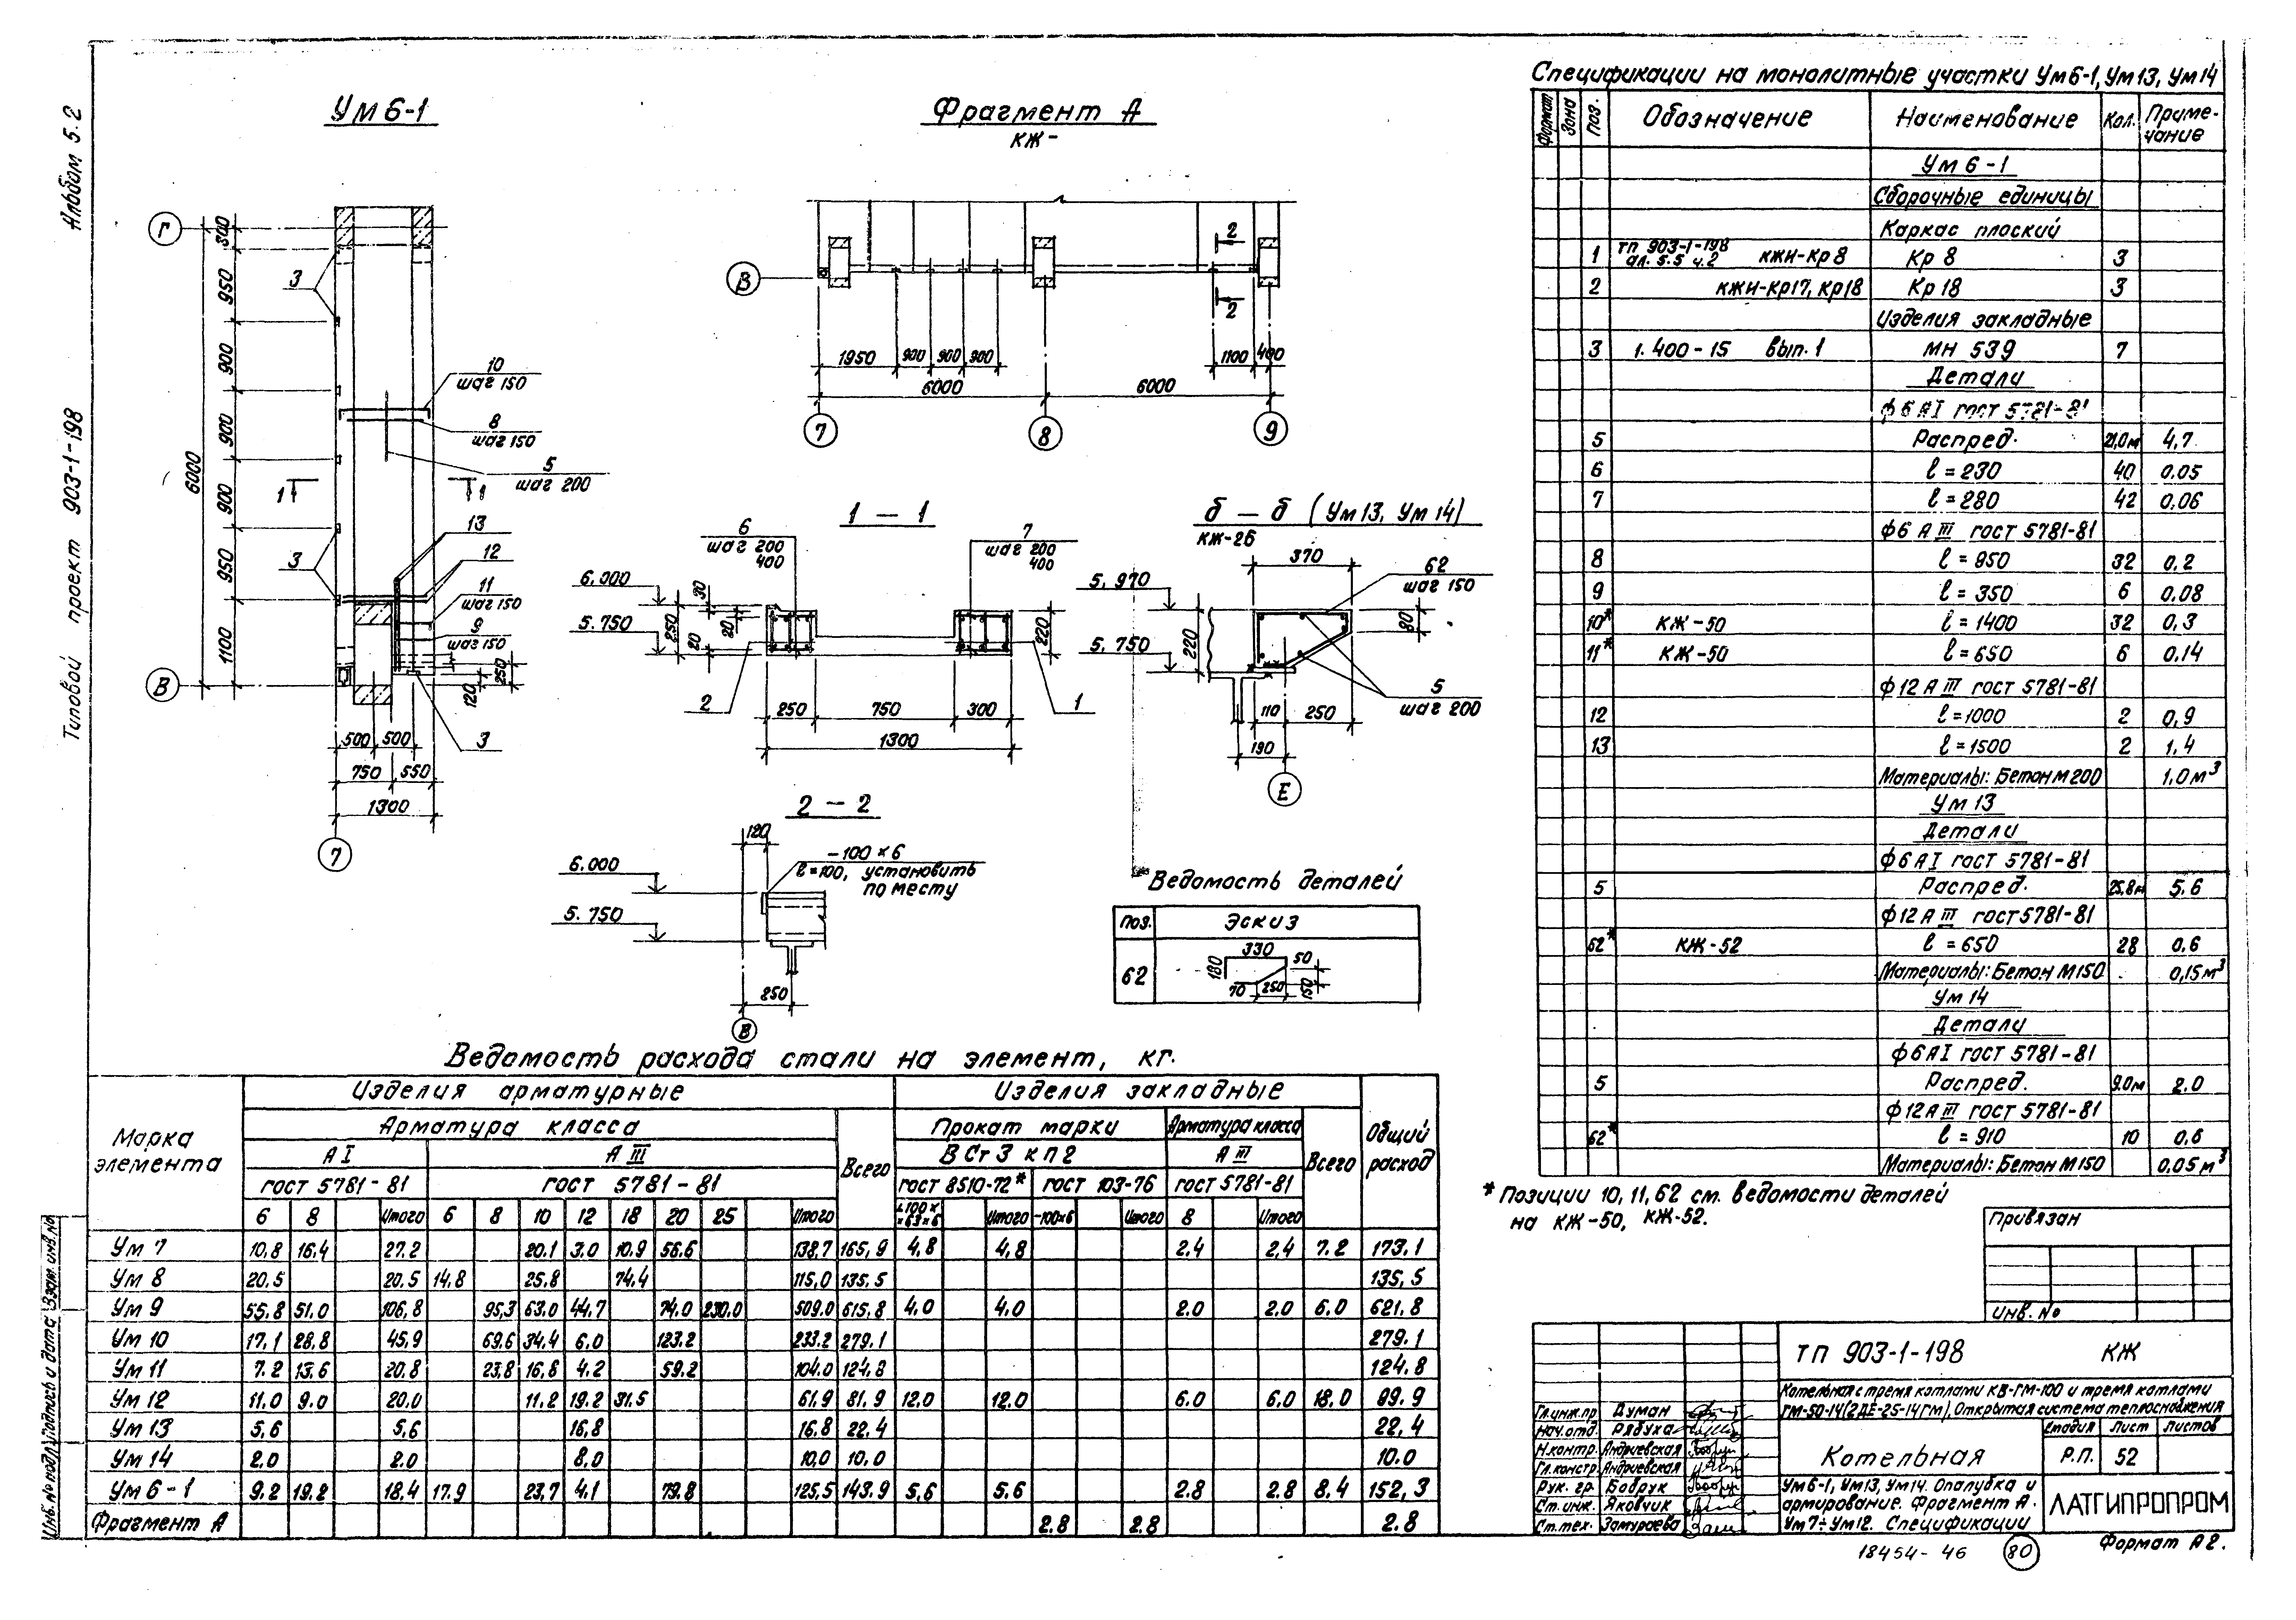 Альбом 5.2
Типовой проект 903-1-198
Ум 6-1
Г
300
950
900
900
900
950
1100
6000
3
10
шаг 150
8
шаг 150
5
шаг 200
1
1
13
12
3
11
шаг 150
9
шаг 150
В
120
250
3
500 500
750 550
1300
7
Фрагмент А
КЖ-
В
2
2
1950 900 900 900 1100 400
6000 6000
7 8 9
1 — 1
6
шаг 200
400
7
шаг 200
400
6.000
5.750
250
30
20
20
220
2
1
250 750 300
1300
б — б (Ум 13, Ум 14)
КЖ-26
370
5.970
62
шаг 150
80
5.750
220
5
шаг 200
110 250
190
Е
2 — 2
120
-100×6
ℓ=100, установить
по месту
6.000
5.750
250
В
Ведомость деталей
Поз. Эскиз
62
330
180
50
70 250 150
Спецификации на монолитные участки Ум6-1, Ум13, Ум14
Формат Зона Поз. Обозначение Наименование Кол. Приме-
чание
Ум 6-1
Сборочные единицы
Каркас плоский
1 ТП 903-1-198 ал. 5.5 ч.2 КЖИ-Кр8 Кр 8 3
2 КЖИ-Кр17, Кр18 Кр 18 3
Изделия закладные
3 1.400-15 Вып. 1 МН 539 7
Детали
ф6 АI ГОСТ 5781-81
5 Распред. 21,0м 4,7
6 ℓ=230 40 0.05
7 ℓ=280 42 0.06
ф6 А III ГОСТ 5781-81
8 ℓ=950 32 0,2
9 ℓ=350 6 0,08
10* КЖ-50 ℓ=1400 32 0,3
11* КЖ-50 ℓ=650 6 0.14
ф12 А III ГОСТ 5781-81
12 ℓ=1000 2 0,9
13 ℓ=1500 2 1,4
Материалы: Бетон М200 1,0м³
Ум 13
Детали
ф6 АI ГОСТ 5781-81
5 Распред. 25,8м 5.6
ф12 А III ГОСТ 5781-81
62* КЖ-52 ℓ=650 28 0.6
Материалы: Бетон М150 0,15м³
Ум 14
Детали
ф6 АI ГОСТ 5781-81
5 Распред. 9.0м 2.0
ф12 А III ГОСТ 5781-81
62* ℓ=910 10 0,6
Материалы: Бетон М150 0.05м³
* Позиции 10, 11, 62 см. ведомости деталей
на КЖ-50, КЖ-52.
Ведомость расхода стали на элемент, кг.
Марка
элемента
Изделия арматурные Изделия закладные Общий
расход
Арматура класса Всего Прокат марки Арматура класса Всего
А I А III ВСт3 кп2 А III
ГОСТ 5781-81 ГОСТ 5781-81 ГОСТ 8510-72* ГОСТ 103-76 ГОСТ 5781-81
6 8 Итого 6 8 10 12 18 20 25 Итого ∟100××63×6 Итого -100×6 Итого 8 Итого
Ум 7 10,8 16,4 27.2 20.1 3.0 10,9 56.6 138,7 165,9 4,8 4,8 2.4 2,4 7.2 173.1
Ум 8 20.5 20.5 14,8 25,8 74,4 115,0 135.5 135,5
Ум 9 55,8 51,0 106,8 95,3 63,0 44,7 74.0 230,0 509.0 615,8 4,0 4.0 2.0 2.0 6.0 621.8
Ум 10 17,1 28,8 45,9 69,6 34,4 6.0 123.2 233.2 279.1 279.1
Ум 11 7.2 13,6 20,8 23,8 16,8 4.2 59.2 104.0 124,8 124.8
Ум 12 11,0 9.0 20.0 11,2 19,2 31,5 61,9 81,9 12.0 12.0 6.0 6.0 18.0 99.9
Ум 13 5,6 5,6 16,8 16,8 22.4 22,4
Ум 14 2.0 2.0 8.0 10,0 10,0 10.0
Ум 6-1 9.2 19.2 18,4 17.9 23,7 4.1 79.8 125,5 143.9 5,6 5.6 2.8 2.8 8.4 152,3
Фрагмент А 2.8 2.8 2.8
Взам. инв. №
Подпись и дата
Инв. № подл.
Привязан
Инв. №
ТП 903-1-198 КЖ
Котельная с тремя котлами КВ-ГМ-100 и тремя котлами
ГМ-50-14(2ДЕ-25-14ГМ), Открытая система теплоснабжения
Гл.инж.пр Думан
Нач.отд. Рябуха
Н.контр. Андриевская
Гл.констр. Андриевская
Рук. гр. Бобрук
Ст.инж. Яковчик
Ст.тех. Замураева
Котельная
Стадия Лист Листов
Р.П. 52
Ум6-1, Ум13, Ум14. Опалубка и
армирование. Фрагмент А.
Ум7÷Ум12. Спецификации
ЛАТГИПРОПРОМ
18454-46 80
Формат А2.